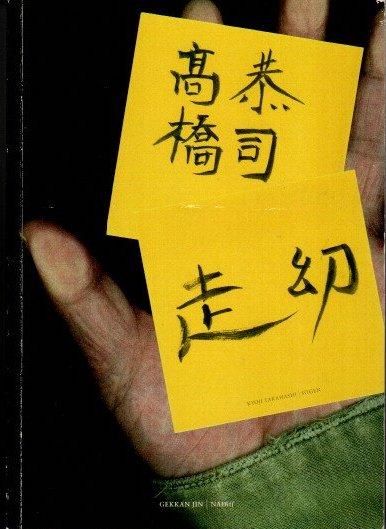 高橋
恭司
走幻
KYOJI TAKAHASHI | SOGEN
GEKKAN JIN | NADiff